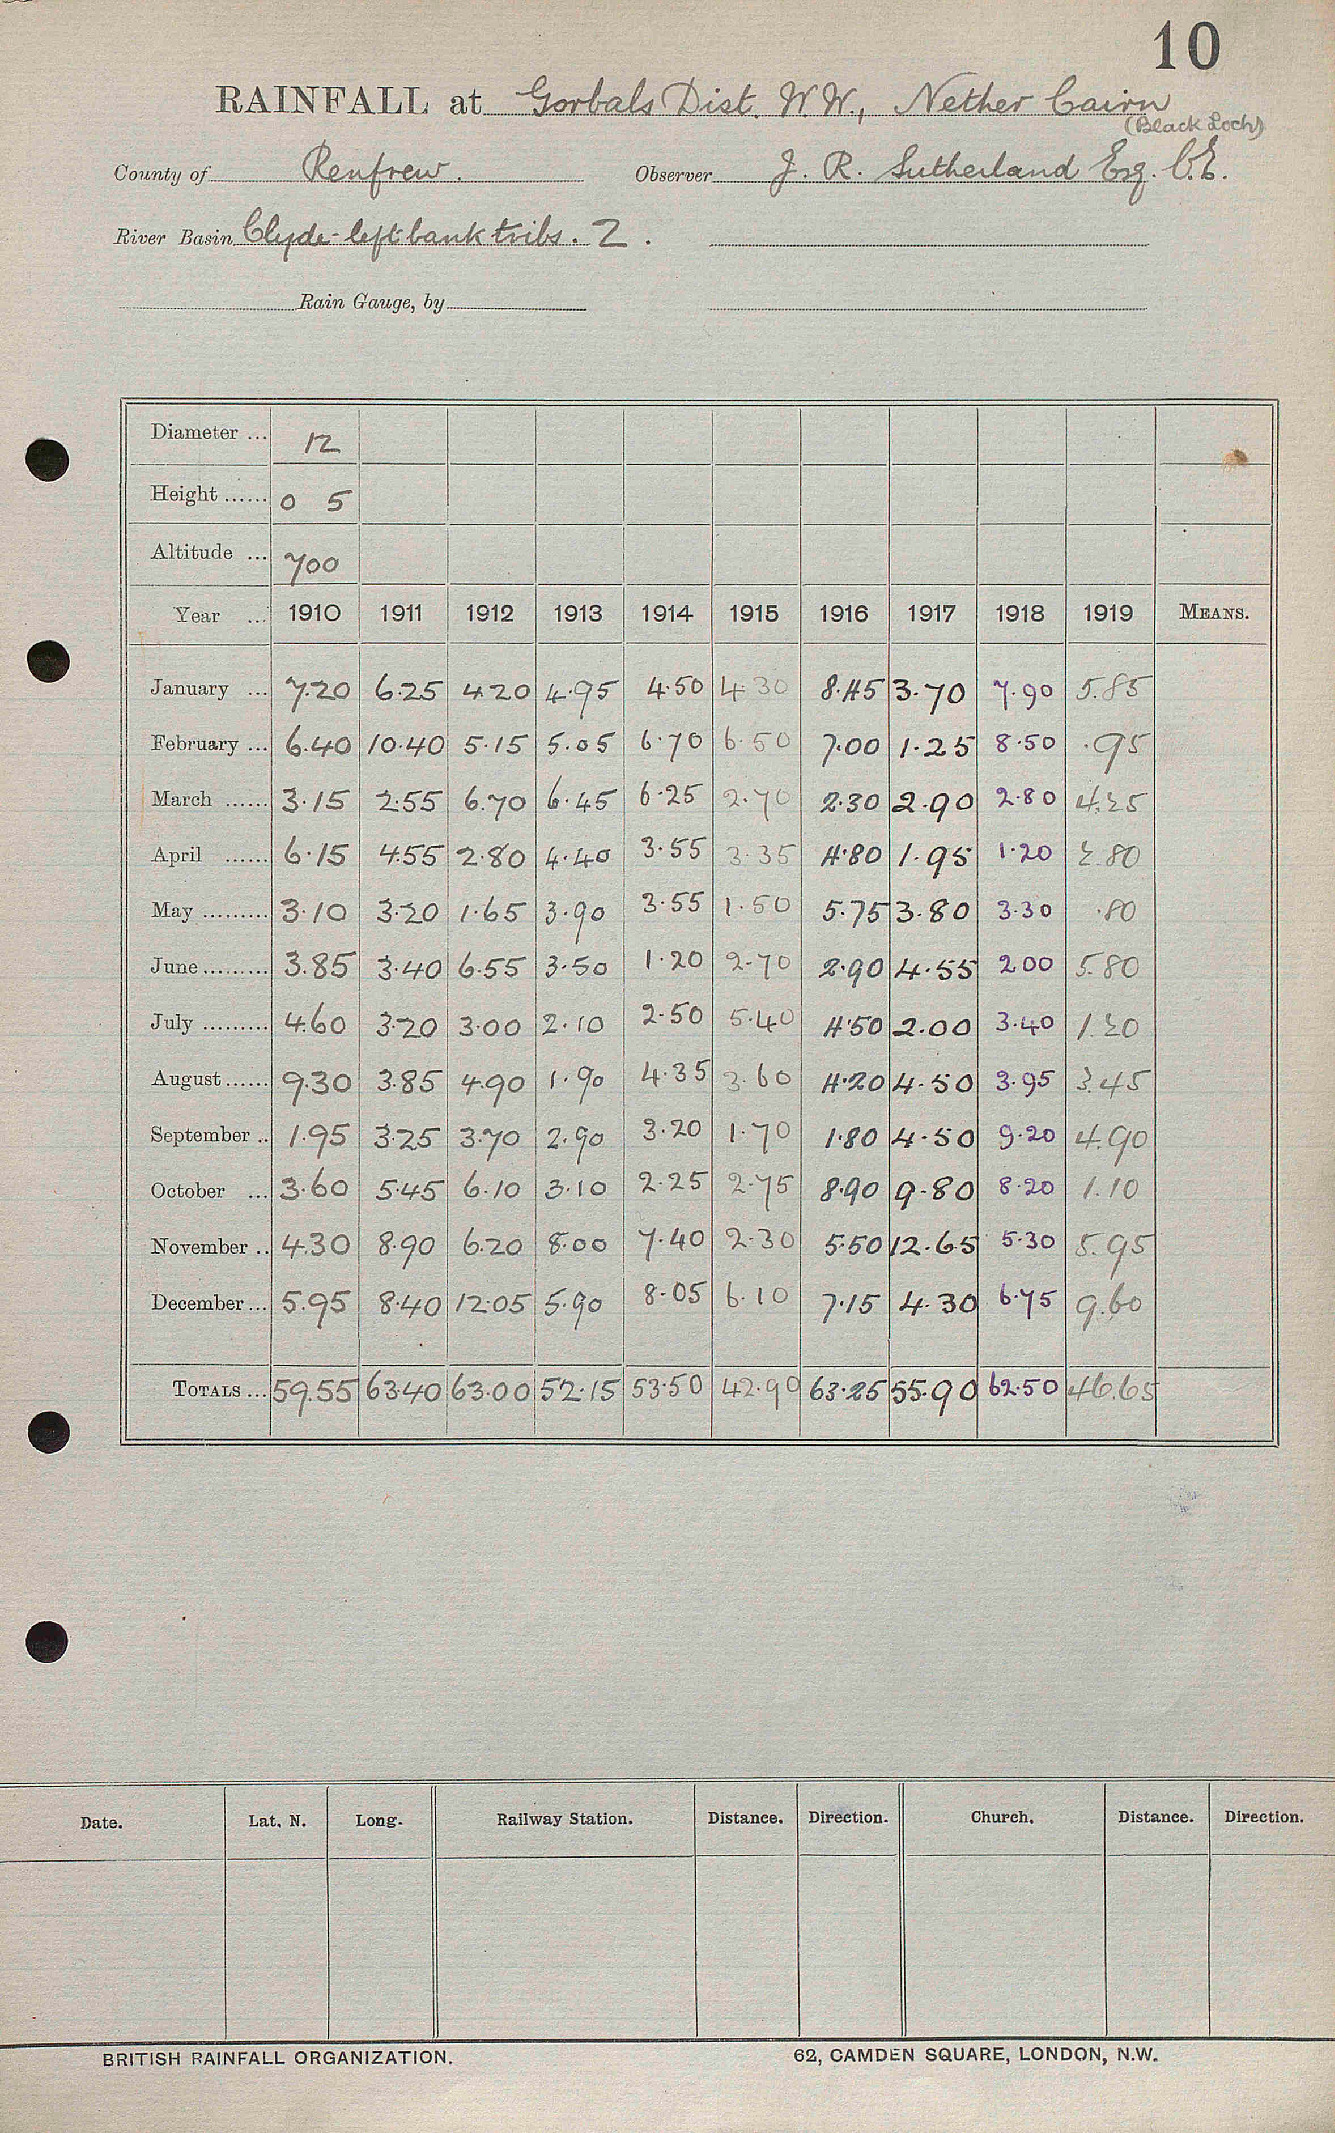 10
RAINFALL at Gorbals Dist. W.W., Nether Cairn
(Black Loch)
County of Renfrew. Observer J. R. Sutherland Esq. C.E.
River Basin Clyde-left bank tribs. 2.
Rain Gauge, by
Diameter ... 12
Height ...... 0 5
Altitude ... 700
Year ... 1910 1911 1912 1913 1914 1915 1916 1917 1918 1919 MEANS.
January ... 7.20 6.25 4.20 4.95 4.50 4.30 8.45 3.70 7.90 5.85
February ... 6.40 10.40 5.15 5.05 6.70 6.50 7.00 1.25 8.50 .95
March ...... 3.15 2.55 6.70 6.45 6.25 2.70 2.30 2.90 2.80 4.25
April ...... 6.15 4.55 2.80 4.40 3.55 3.35 4.80 1.95 1.20 2.80
May ......... 3.10 3.20 1.65 3.90 3.55 1.50 5.75 3.80 3.30 .80
June ......... 3.85 3.40 6.55 3.50 1.20 2.70 2.90 4.55 2.00 5.80
July ......... 4.60 3.20 3.00 2.10 2.50 5.40 4.50 2.00 3.40 1.20
August ...... 9.30 3.85 4.90 1.90 4.35 3.60 4.20 4.50 3.95 3.45
September .. 1.95 3.25 3.70 2.90 3.20 1.70 1.80 4.50 9.20 4.90
October ... 3.60 5.45 6.10 3.10 2.25 2.75 8.90 9.80 8.20 1.10
November .. 4.30 8.90 6.20 8.00 7.40 2.30 5.50 12.65 5.30 5.95
December ... 5.95 8.40 12.05 5.90 8.05 6.10 7.15 4.30 6.75 9.60
TOTALS ... 59.55 63.40 63.00 52.15 53.50 42.90 63.25 55.90 62.50 46.65
Date. Lat. N. Long. Railway Station. Distance. Direction. Church. Distance. Direction.
BRITISH RAINFALL ORGANIZATION. 62, CAMDEN SQUARE, LONDON, N.W.